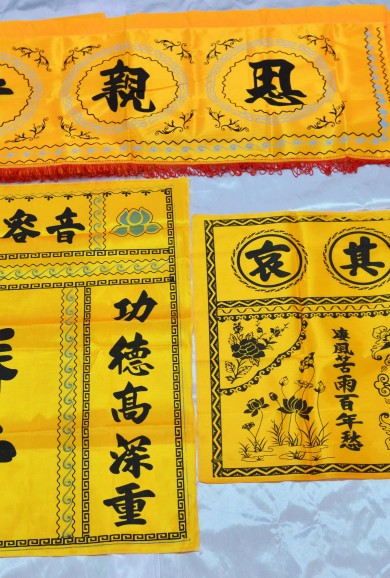 恩親
音容
功德高深重
其哀
凄風苦雨百年愁